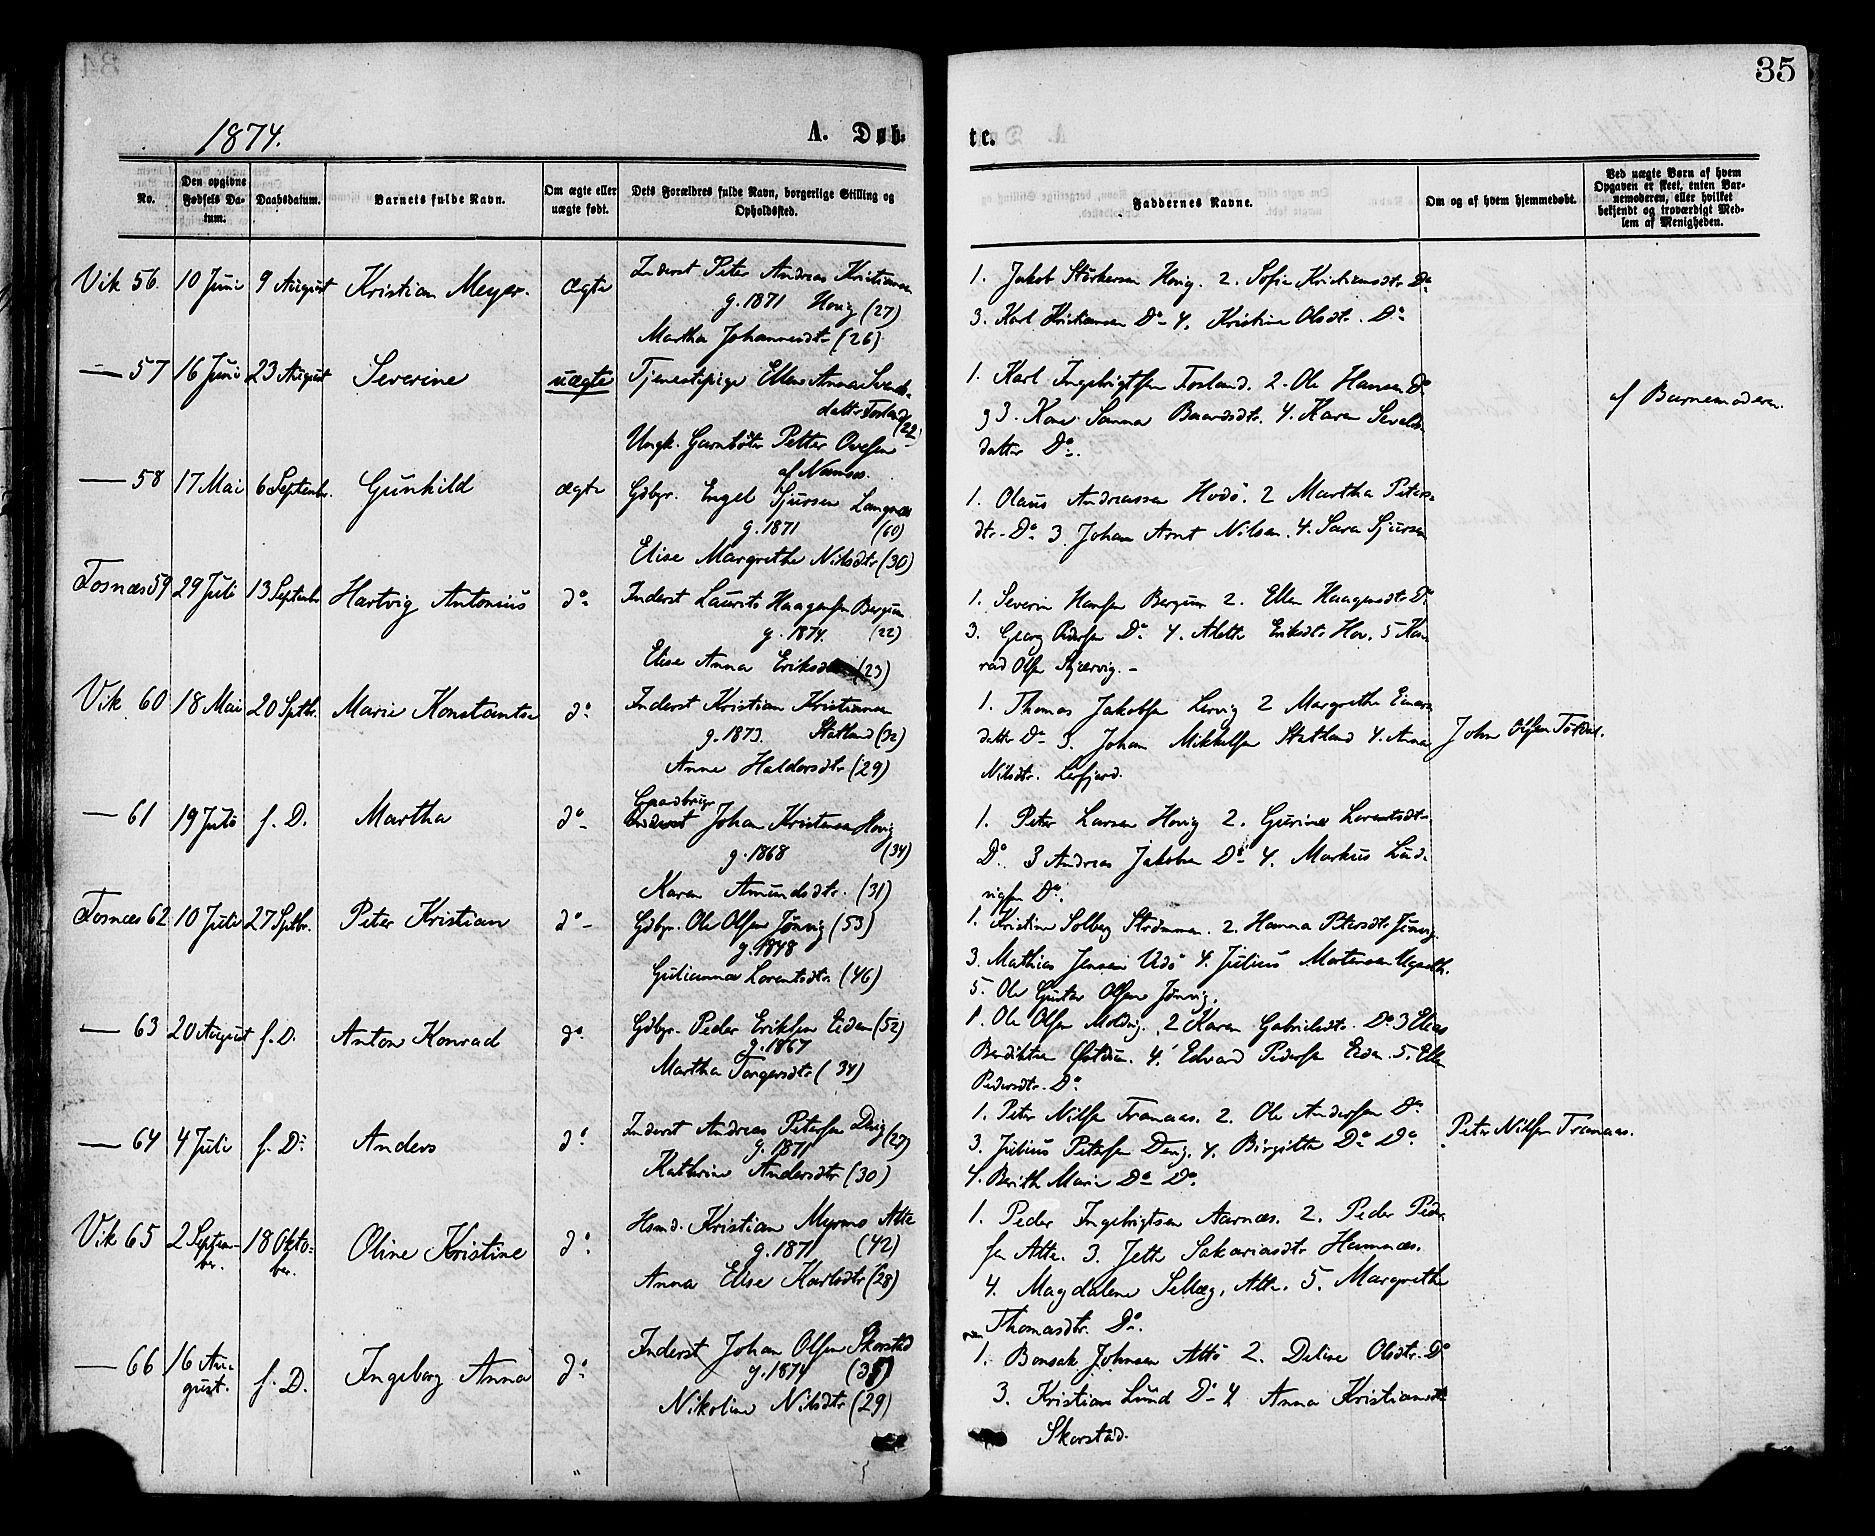 35
1874.
A. Døb-
te.
No.
Den opgivne Fødsels Datum.
Daabsdatum.
Barnets fulde Navn.
Om ægte eller uægte født.
Dets Forældres fulde Navn, borgerlige Stilling og Opholdssted.
Faddernes Navne.
Om og af hvem hjemmedøbt.
Ved uægte Børn af hvem Opgaven er skeet, enten Barnemoderen, eller hvilket bekjendt og troværdigt Medlem af Menigheden.
Vik 56. 10 Juni 9 August Kristian Meyer. ægte
Inderst Peter Andreas Kristiansen
g. 1871 Hovig (27)
Martha Johannesdtr (26)
1. Jakob Storkersen Hovig. 2. Sofie Kristiansdtr. Do
3. Karl Kristiansen Do 4. Kristine Olsdtr. Do
— 57 16 Juni 23 August Severine uægte
Tjenestepige Ellen Anna Sevals-
datter Fosland (22)
Ungk. Garnbøter Petter Ovesen
af Namsos.
1. Karl Ingebrigtsen Fosland. 2. Ole Hansen Do
og 3. Kone Sanna Baardsdtr. 4. Karen Sevals-
datter Do.
af Barnemoderen.
— 58 17 Mai 6 Septembr. Gunhild ægte
Gdbgr. Engel Sjursen Langnæs
g. 1871 (60)
Elise Margrethe Nilsdtr (30)
1. Olaus Andreassen Hodø. 2 Martha Peters-
dtr. Do 3. Johan Arnt Nilsen. 4. Sara Sjursen
Fosnæs 59 29 Juli 13 Septembr Hartvig Antonius do
Inderst Laurits Haagensen Bergum
g. 1874. (22)
Elise Anna Eriksdtr (23)
1. Severin Hansen Bergum 2. Ellen Haagensdtr Do
3. Georg Pedersen Do 4. Alette Eriksdtr Hov. 5 Kon-
rad Olsen Skjærvig.
Vik 60 18 Mai 20 Sptbr. Marie Konstantse do
Inderst Kristian Kristiansen
g. 1873. Statland (32)
Anne Haldorsdtr (29)
1. Thomas Jakobsen Lervig 2 Margrethe Einars-
datter Do 3. Johan Mikkelsen Statland 4. Anna
Nilsdtr. Lerfjord.
John Olsen Tøtdal.
— 61 19 Juli f. D. Martha do
Gaardbrugr
Inderst Johan Kristensen Hovig
g. 1868 (34)
Karen Amundsdtr. (31)
1. Peter Larsen Hovig 2. Gurine Lorentsdtr.
Do. 3 Andreas Jakobsen Do 4. Markus Lud-
vigsen Do.
Fosnæs 62 10 Juli 27 Sptbr. Peter Kristian do
Gdbgr. Ole Olsen Jønvig (53)
g. 1848
Gulianna Lorentsdtr. (46)
1. Kristine Solberg Strømmen. 2. Hanna Petersdtr Jønvig.
3. Mathias Jensen Udø 4. Julius Mortensen
5. Ole Gustav Olsen Jønvig.
— 63 20 August f. D. Anton Konrad do
Gdbgr. Peder Eriksen Eiden (52)
g. 1867
Martha Torgersdtr (34)
1. Ole Olsen Moldvig. 2 Karen Gabrielsdtr. Do 3 Elias
Bendiktsen 4. Edvard Pedersen Eiden. 5. Ellen
Pedersdtr. Do
— 64 4 Juli f. D. Anders do
Inderst Andreas Petersen Devig (27)
g. 1871
Kathrine Andersdtr (30)
1. Peter Nilsen Tranaas. 2. Ole Anderssen Do
3. Julius Petersen Devig. 4. Birgitte Do Do
4. Berith Marie Do Do.
Peter Nilsen Tranaas.
Vik 65 2 Septem-
ber. 18 Okto-
ber. Oline Kristine do
Hsmd. Kristian Myrmo Altø
g. 1871 (42)
Anna Elise Karlsdtr (28)
1. Peder Ingebrigtsen Aarnæs. 2. Peder Peder-
sen Altø. 3. Jette Sakariasdtr Hamnæs.
4. Magdalene Selbæg, Altø. 5. Margrethe
Thomasdtr. Do.
— 66 16 Au-
gust. f. D. Ingeborg Anna do
Inderst Johan Olsen Skorstad
g. 1874
Nikoline Nilsdtr (29)
1. Bonsak Johnsen Altø 2. Deline Olsdtr. Do
3. Kristian Lund Do 4 Anna Kristiansdtr
Skorstad.